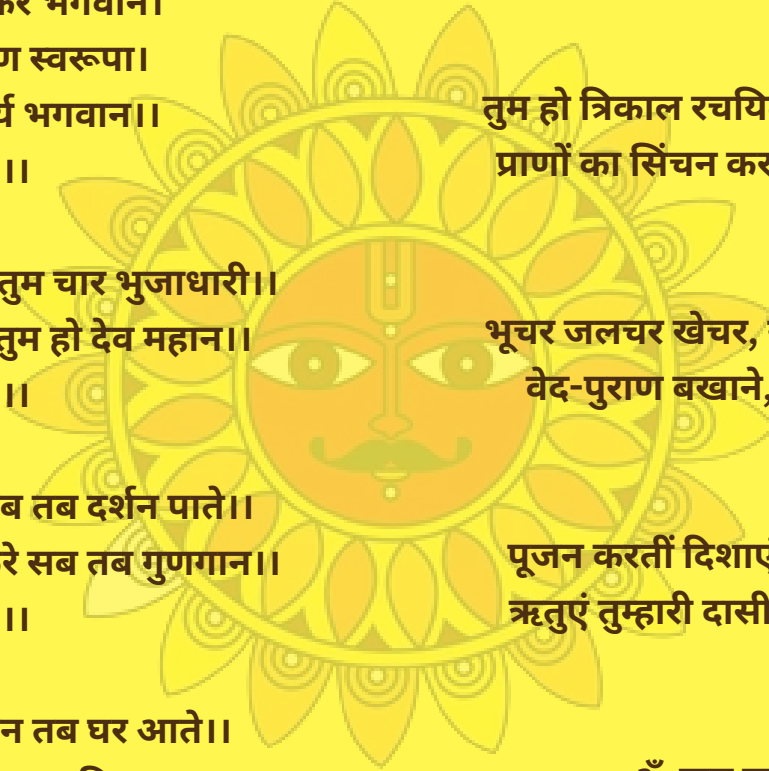 भगवान।
स्वरूपा।
भगवान।।
।।
तुम चार भुजाधारी।।
तुम हो देव महान।।
।।
तब दर्शन पाते।।
सब तब गुणगान।।
।।
तब घर आते।।
तुम हो त्रिकाल
प्राणों का सिंचन
भूचर जलचर खेचर,
वेद-पुराण बखाने,
पूजन करतीं दिशाएं
ऋतुएं तुम्हारी दासी